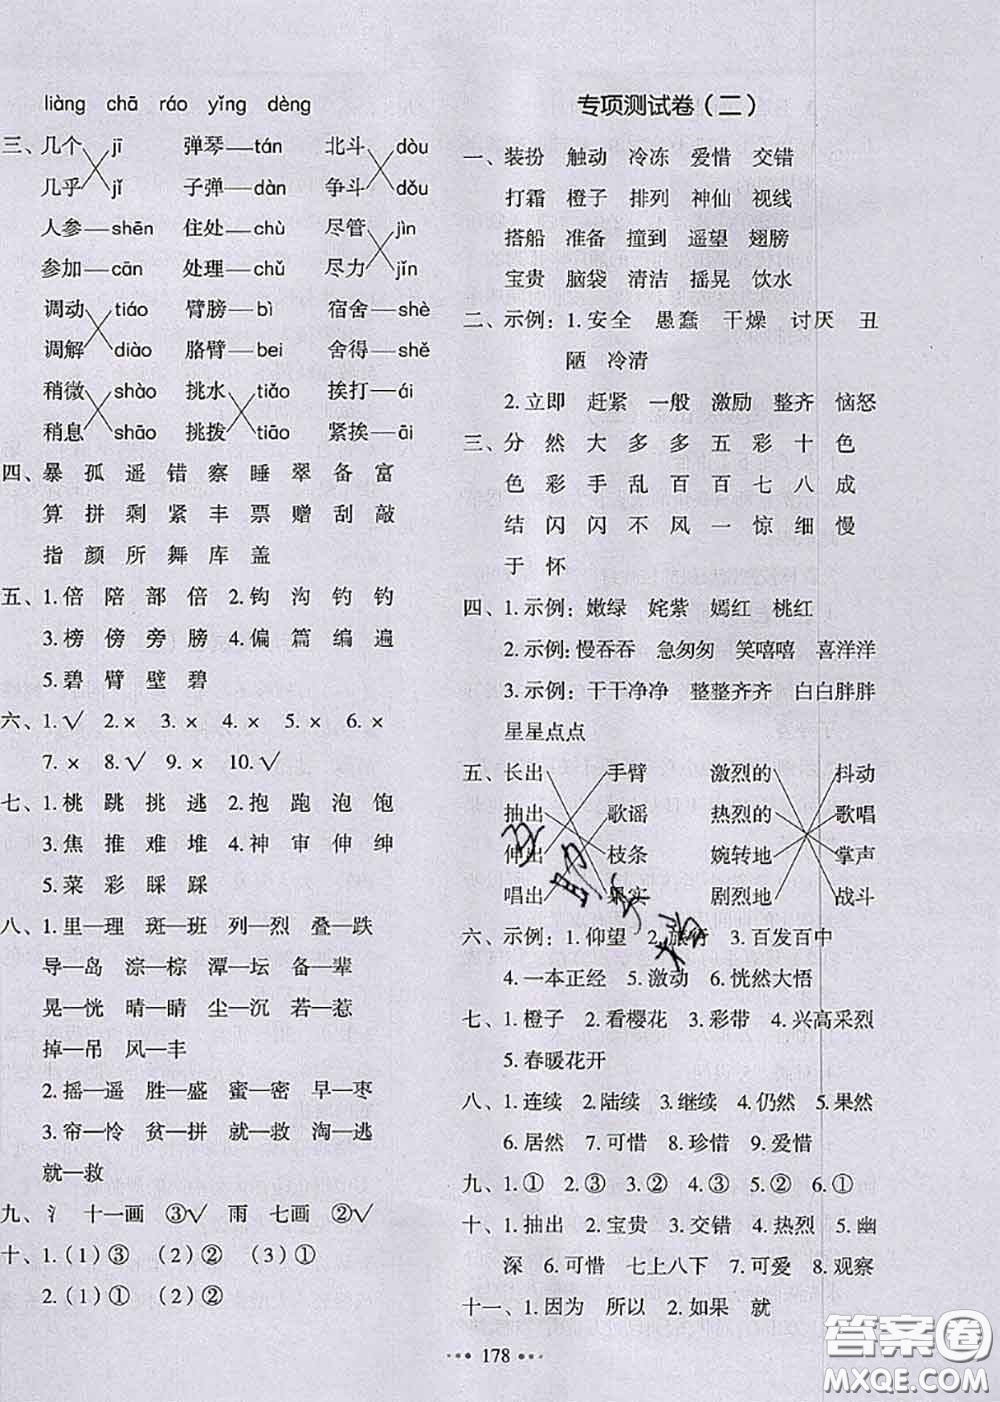 liàng chā ráo yǐng dèng
三、几个 jī 弹琴—tán 北斗 dòu
几乎 jǐ 子弹—dàn 争斗 dǒu
人参—shēn 住处—chù 尽管 jìn
参加—cān 处理—chǔ 尽力 jǐn
调动 tiáo 臂膀—bì 宿舍—shè
调解 diào 胳臂—bei 舍得—shě
稍微 shào 挑水 tiǎo 挨打—ái
稍息 shāo 挑拨 tiāo 紧挨—āi
四、暴 孤 遥 错 察 睡 翠 备 富
算 拼 剩 紧 丰 票 赠 刮 敲
指 颜 所 舞 库 盖
五、1.倍 陪 部 倍 2.钩 沟 钓 钓
3.榜 傍 旁 膀 4.偏 篇 编 遍
5.碧 臂 壁 碧
六、1.√ 2.× 3.× 4.× 5.× 6.×
7.× 8.√ 9.× 10.√
七、1.桃 跳 挑 逃 2.抱 跑 泡 饱
3.焦 推 难 堆 4.神 审 伸 绅
5.菜 彩 睬 踩
八、1.里—理 斑—班 列—烈 叠—跌
导—岛 淙—棕 潭—坛 备—辈
晃—恍 晴—睛 尘—沉 若—惹
掉—吊 风—丰
2.摇—遥 胜—盛 蜜—密 早—枣
3.帘—怜 贫—拼 就—救 淘—逃
就—救
九、氵 十一画 ③√ 雨 七画 ②√
十、1.（1）③ （2）② （3）①
2.（1）① （2）②
专项测试卷（二）
一、装扮 触动 冷冻 爱惜 交错
打霜 橙子 排列 神仙 视线
搭船 准备 撞到 遥望 翅膀
宝贵 脑袋 清洁 摇晃 饮水
二、示例：1.安全 愚蠢 干燥 讨厌 丑
陋 冷清
2.立即 赶紧 一般 激励 整齐 恼怒
三、分 然 大 多 多 五 彩 十 色
色 彩 手 乱 百 百 七 八 成
结 闪 闪 不 风 一 惊 细 慢
于 怀
四、1.示例：嫩绿 姹紫 嫣红 桃红
2.示例：慢吞吞 急匆匆 笑嘻嘻 喜洋洋
3.示例：干干净净 整整齐齐 白白胖胖
星星点点
五、长出 手臂 激烈的 抖动
抽出 歌谣 热烈的 歌唱
伸出 枝条 婉转地 掌声
唱出 果实 剧烈地 战斗
六、示例：1.仰望 2.旅行 3.百发百中
4.一本正经 5.激动 6.恍然大悟
七、1.橙子 2.看樱花 3.彩带 4.兴高采烈
5.春暖花开
八、1.连续 2.陆续 3.继续 4.仍然 5.果然
6.居然 7.可惜 8.珍惜 9.爱惜
九、1.① 2.③ 3.② 4.③ 5.② 6.①
十、1.抽出 2.宝贵 3.交错 4.热烈 5.幽
深 6.可惜 七上八下 7.可爱 8.观察
十一、1.因为 所以 2.如果 就
178
答案圈
MXQE.COM